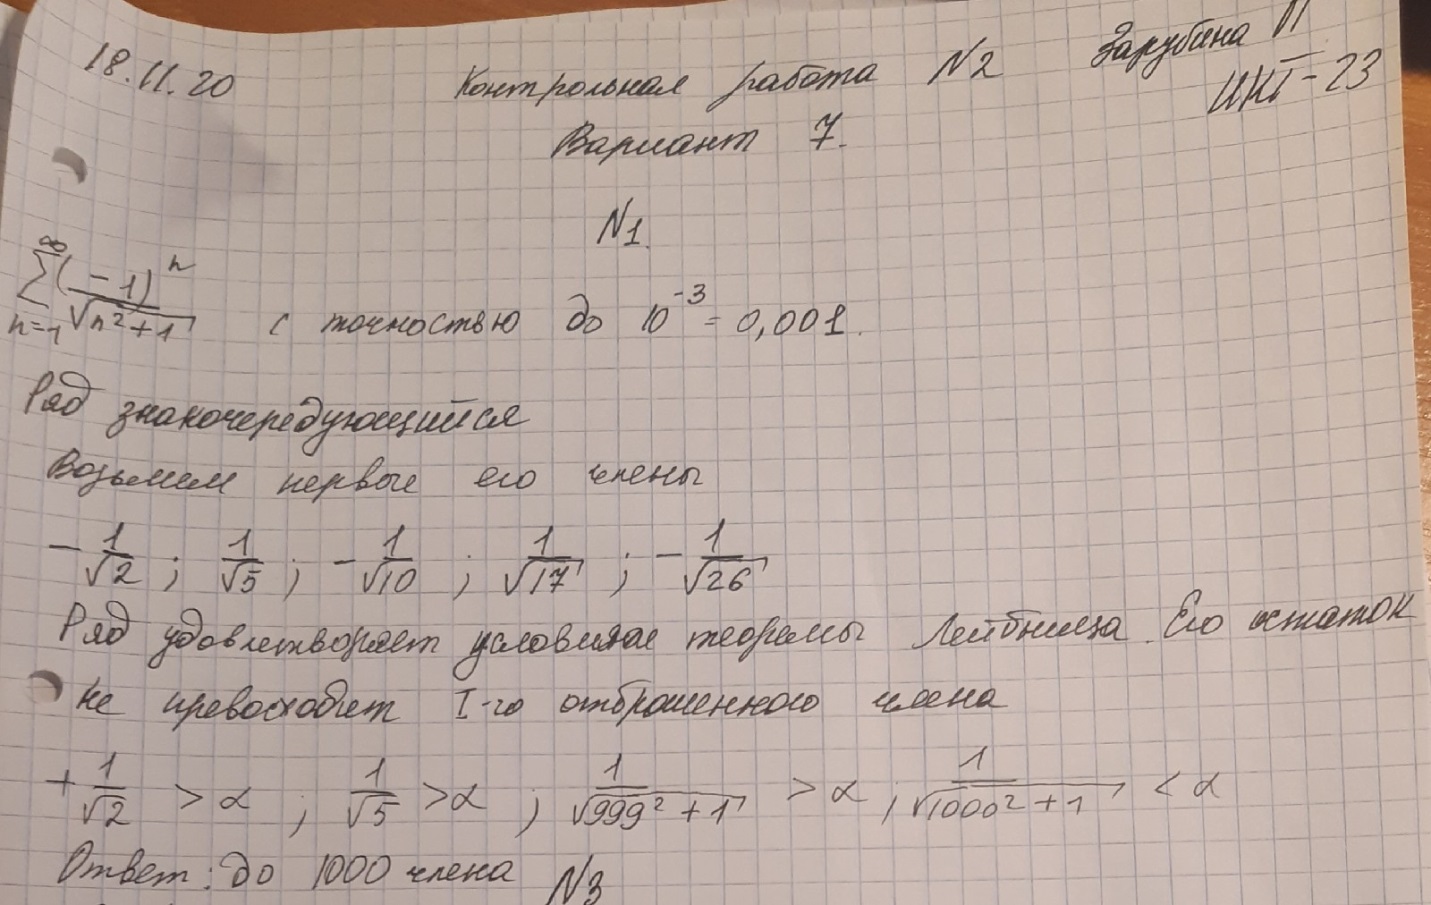 18.11.20 Контрольная работа N2 Зарубина П
Вариант 7. ИКТ-23
N1.
∑_{n=1}^{∞} (-1)^n / √(n²+1) с точностью до 10^{-3} = 0,001.
Ряд знакочередующийся
Возьмем первые его члены
- 1/√2 ; 1/√5 ; - 1/√10 ; 1/√17 ; - 1/√26
Ряд удовлетворяет условиям теоремы Лейбница. Его остаток
не превосходит I-го отброшенного члена
+ 1/√2 > α ; 1/√5 > α ; 1/√(999²+1) > α ; 1/√(1000²+1) < α
Ответ: до 1000 члена N3